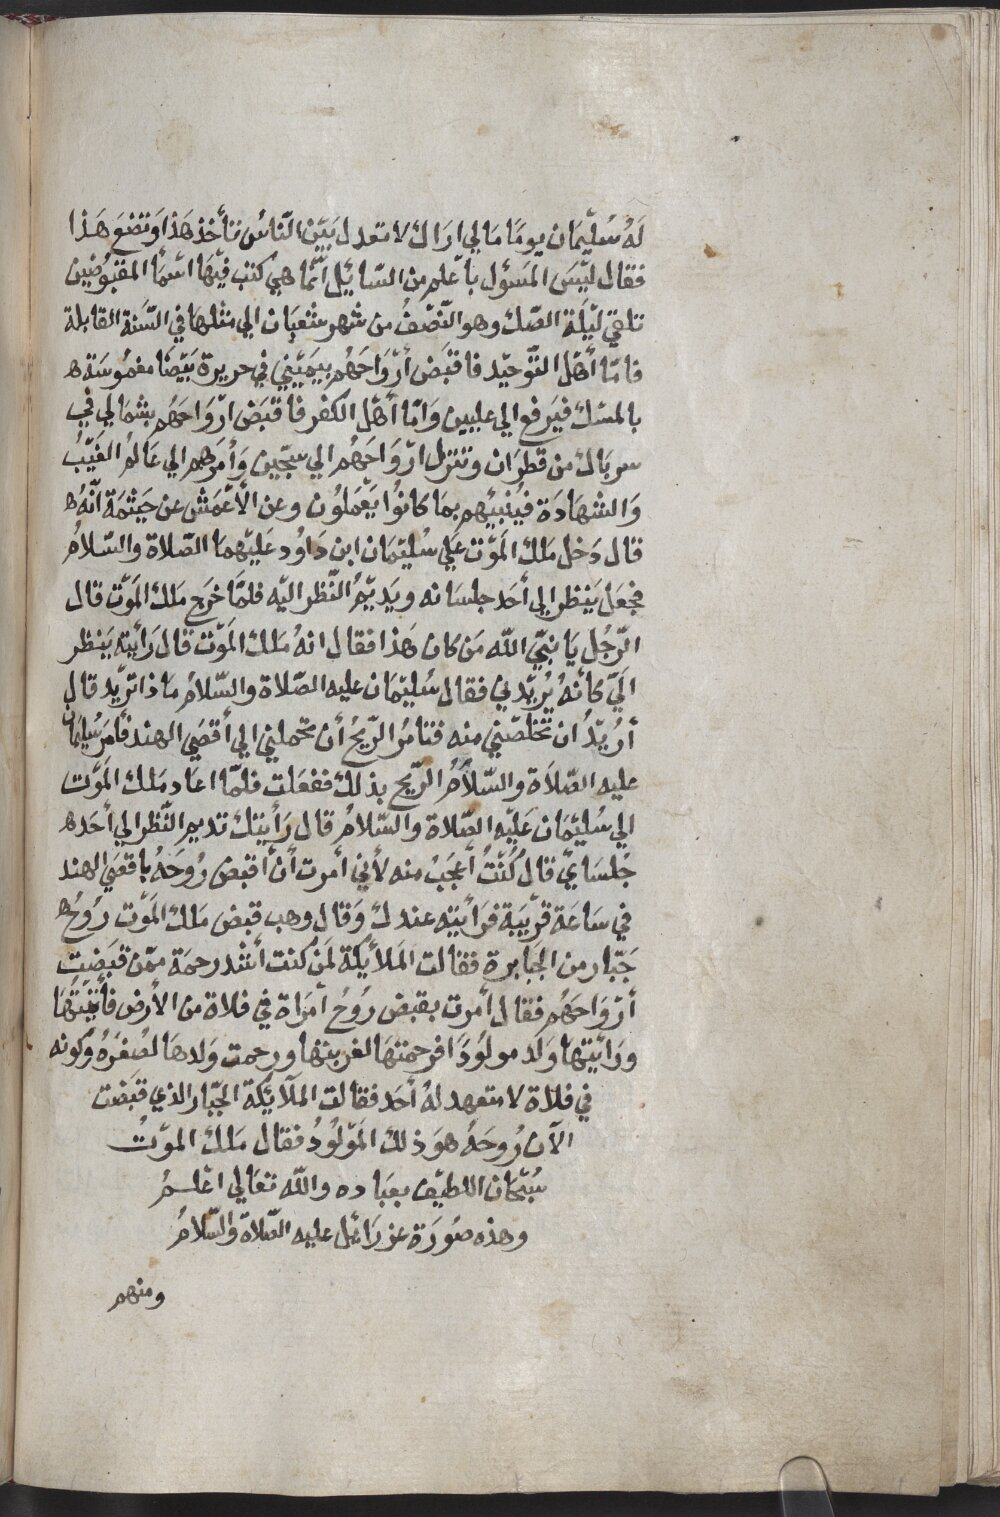 لَهُ سُلَيْمَان يومًا مَا لي ارَاك لا تعدل بَيْن النّاسُ تأخذ هَذا وَتضعَ هَذا
فقال ليْسَ المسَؤل بأعْلم من السّائِل انّما هي كتب فيْهَا اسْمَا المقبُوضين
تلقي ليْلَة الصّك وهو النّصْفُ من شهر شعْبَان الي مثلها في السّنَة القابلة
فامّا أهْل التّوحيْد فاقبَض أرْوَاحَهُم بيَميْني في حريرة بَيْضَا مغمُوسَة
بالمسْك فيَرفع الي عليين وَامّا أهْل الكفر فاقبَض ارْوَاحَهُم بشمَالي في
سربَال من قطرَان وتنزل ارْوَاحَهُم الي سجّين وَأمرَهم الي عَالمُ الغَيْبُ
وَالشهَادَة فيُنْبيْهم بمَا كانوُا يَعْمَلوُن وعن الأعْمَش عن خيَثمَة انّهُ
قال دَخل مَلك المَوْت عَلي سُليْمَان ابن دَاوُد عَليْهمَا الصّلاة والسّلامُ
فجعَل يَنظر الي أحَد جلسَائه ويَديْمُ النّظر اليْه فلمّا خرَج مَلك المَوْت قال
الرّجُل يَا نبيّ الله مَن كان هَذا فقال انهُ مَلك المَوْت قال رَأيته يَنظر
اليّ كأنهُ يُريْدني فقال سُليْمَان عليه الصّلاة والسّلامُ ماذا تريْد قال
أريْدُ ان تخلصّني منه فتامُر الرّيحُ أن تحملني الي أقصَي الهند فأمَر سُليْمَان
عليه الصّلاَة والسّلاَمُ الرّيح بذلك ففعَلت فلمّا اعاد مَلك المَوْت
الي سُليْمَان عَليْه الصّلاة والسّلامُ قال رَأيتك تديم النّظر الي أحَد
جُلسَايْ قال كُنتُ أعجَبُ منه لأني أمرت أن أقبض رُوحَهُ باقصَي الهند
في سَاعَة قريْبَة فرَأيته عندك وَقال وهب قبض مَلك المَوْت رُوحُ
جَبّار من الجَبَابرة فقالت المَلائِكة لمَن كنت أشد رحمَة ممّن قبَضت
أرْوَاحهُم فقال أمرت بقبض رُوحُ أمرَاة في فلاة من الأرض فأتيْتهَا
ورَايْتهَا وَلَد مولوُدًا فرحمتهَا لغربتها ورحمت وَلدهَا لصُغرَهُ وَكونه
في فلاة لا متعهد لهُ أحَد فقالت الملآئِكة الجَبّار الذي قبَضت
الآن رُوحَهُ هوَ ذلك المَوْلوُدُ فقال مَلك الموْتُ
سُبْحَان اللطيْف بعبَاده والله تعَالي اعْلــمُ
وهذه صُورَة عزرَائيل عليه الصّلاة وَالسّلامُ
ومنهم